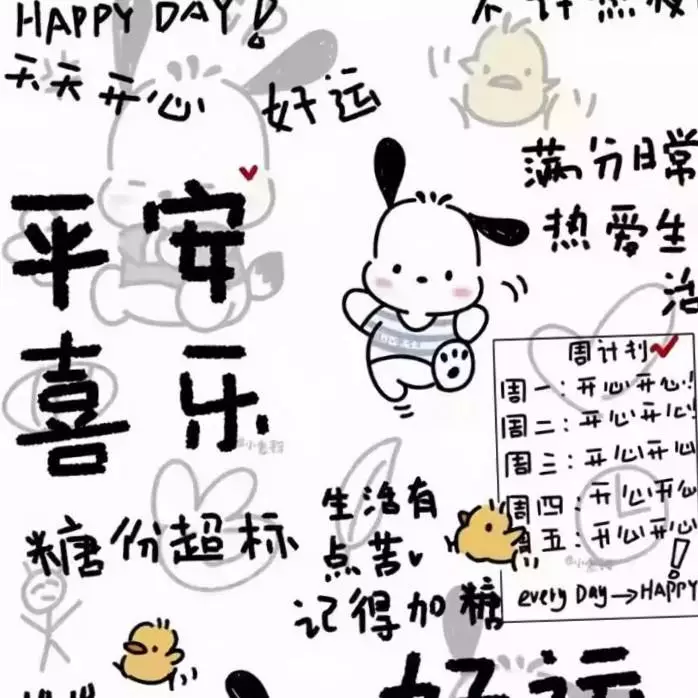 HAPPY DAY!
天天开心
好运
满分日常
热爱生
活
平安
喜乐
@小惫羁
周计划
周一:开心开心!
周二:开心开心
周三:开心开心
周四:开心开心
周五:开心开心!
every DAY→HAPPY
糖份超标
生活有
点苦
记得加糖
好运